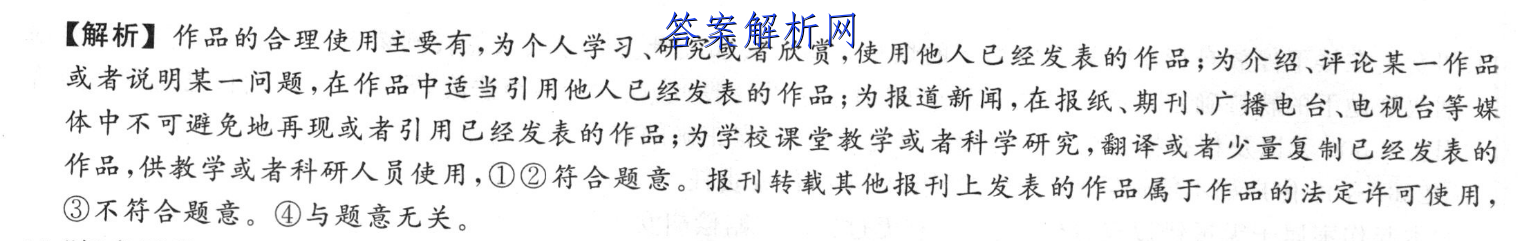 答案解析网
【解析】作品的合理使用主要有,为个人学习、研究或者欣赏,使用他人已经发表的作品;为介绍、评论某一作品
或者说明某一问题,在作品中适当引用他人已经发表的作品;为报道新闻,在报纸、期刊、广播电台、电视台等媒
体中不可避免地再现或者引用已经发表的作品;为学校课堂教学或者科学研究,翻译或者少量复制已经发表的
作品,供教学或者科研人员使用,①②符合题意。报刊转载其他报刊上发表的作品属于作品的法定许可使用,
③不符合题意。④与题意无关。